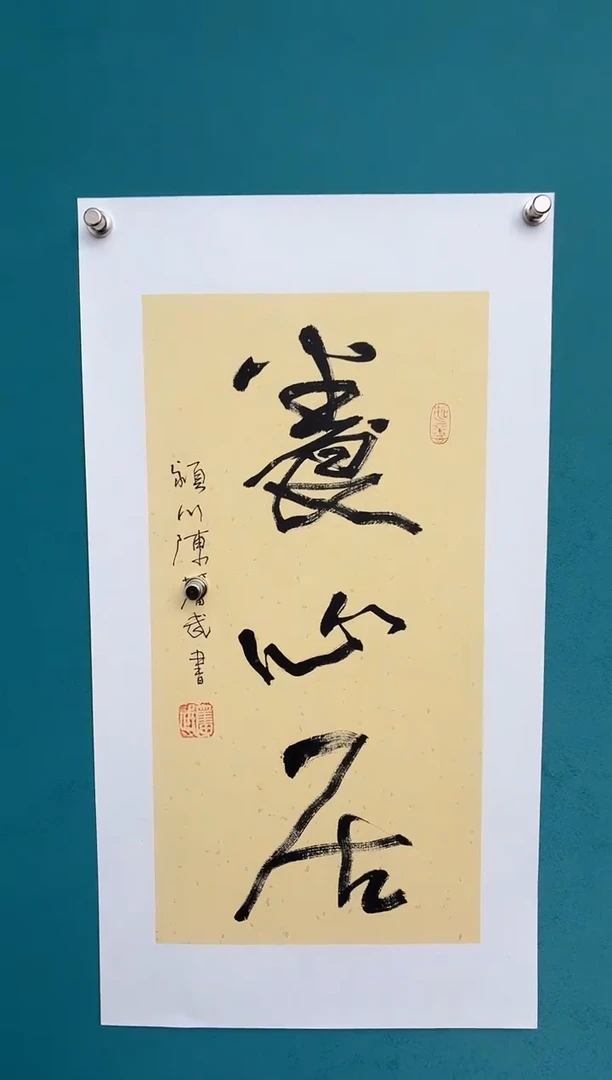 養心居
潁川陳蕃武書